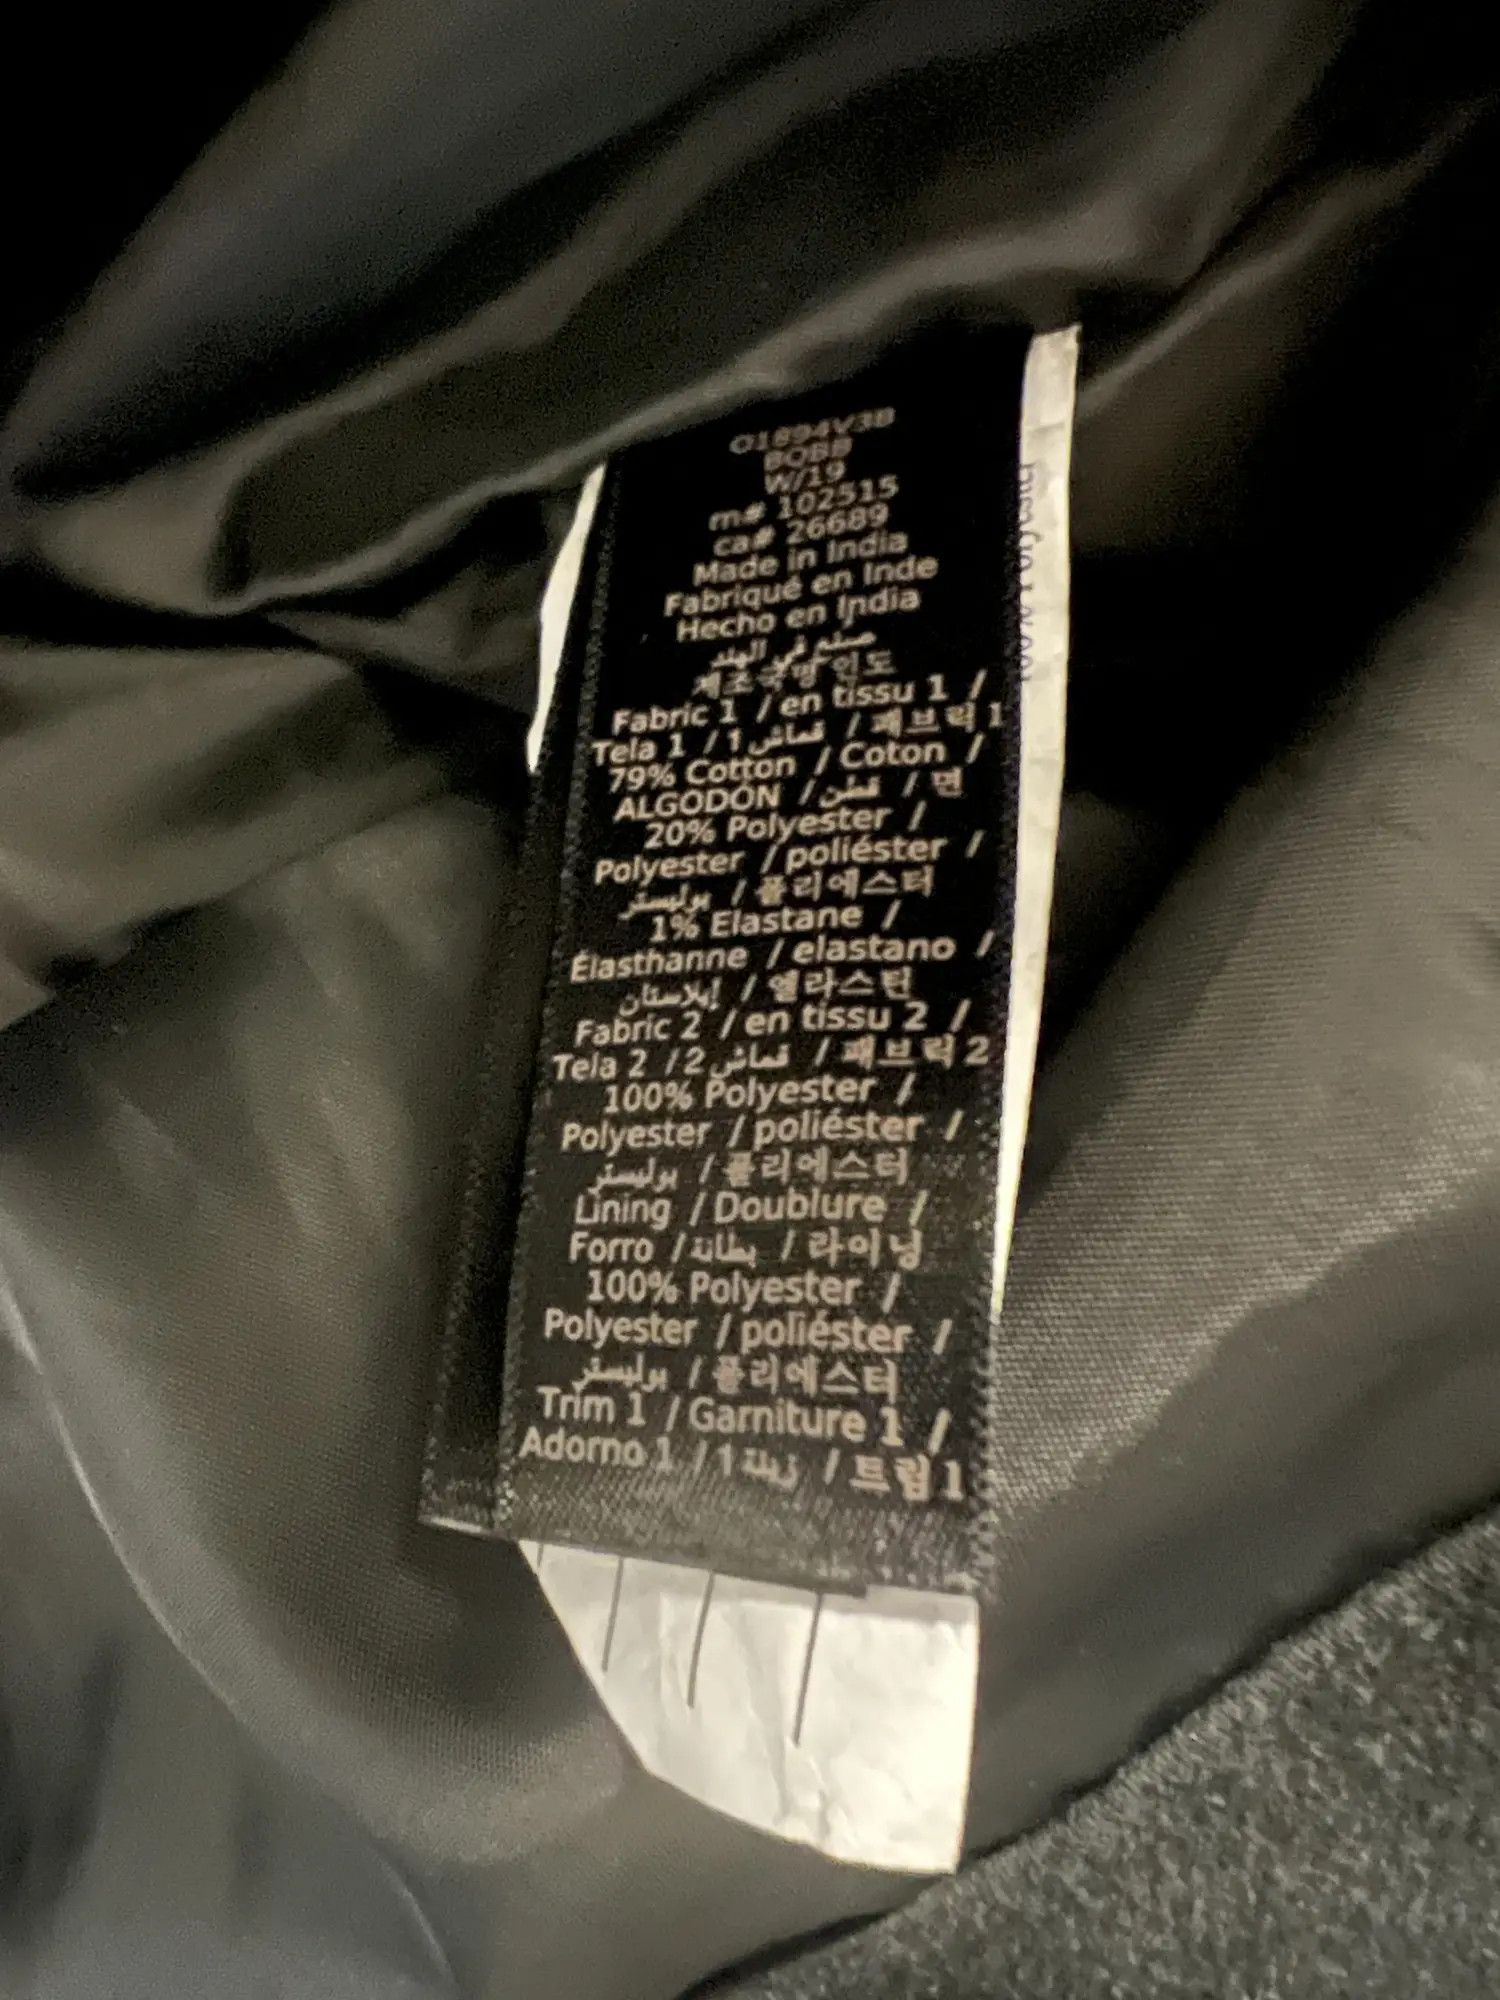 O1894V3B
BOBB
W/19
rn# 102515
ca# 26689
Made in India
Fabriqué en Inde
Hecho en India
صنع في الهند
제조국명 인도
Fabric 1 / en tissu 1 /
Tela 1 / قماش 1 / 패브릭 1
79% Cotton / Coton /
ALGODÓN / قطن / 면
20% Polyester /
Polyester / poliéster /
بوليستر / 폴리에스터
1% Elastane /
Élasthanne / elastano /
إيلاستان / 엘라스틴
Fabric 2 / en tissu 2 /
Tela 2 / قماش 2 / 패브릭 2
100% Polyester /
Polyester / poliéster /
بوليستر / 폴리에스터
Lining / Doublure /
Forro / بطانة / 라이닝
100% Polyester /
Polyester / poliéster /
بوليستر / 폴리에스터
Trim 1 / Garniture 1 /
Adorno 1 / زينة 1 / 트림 1
100% Polyester